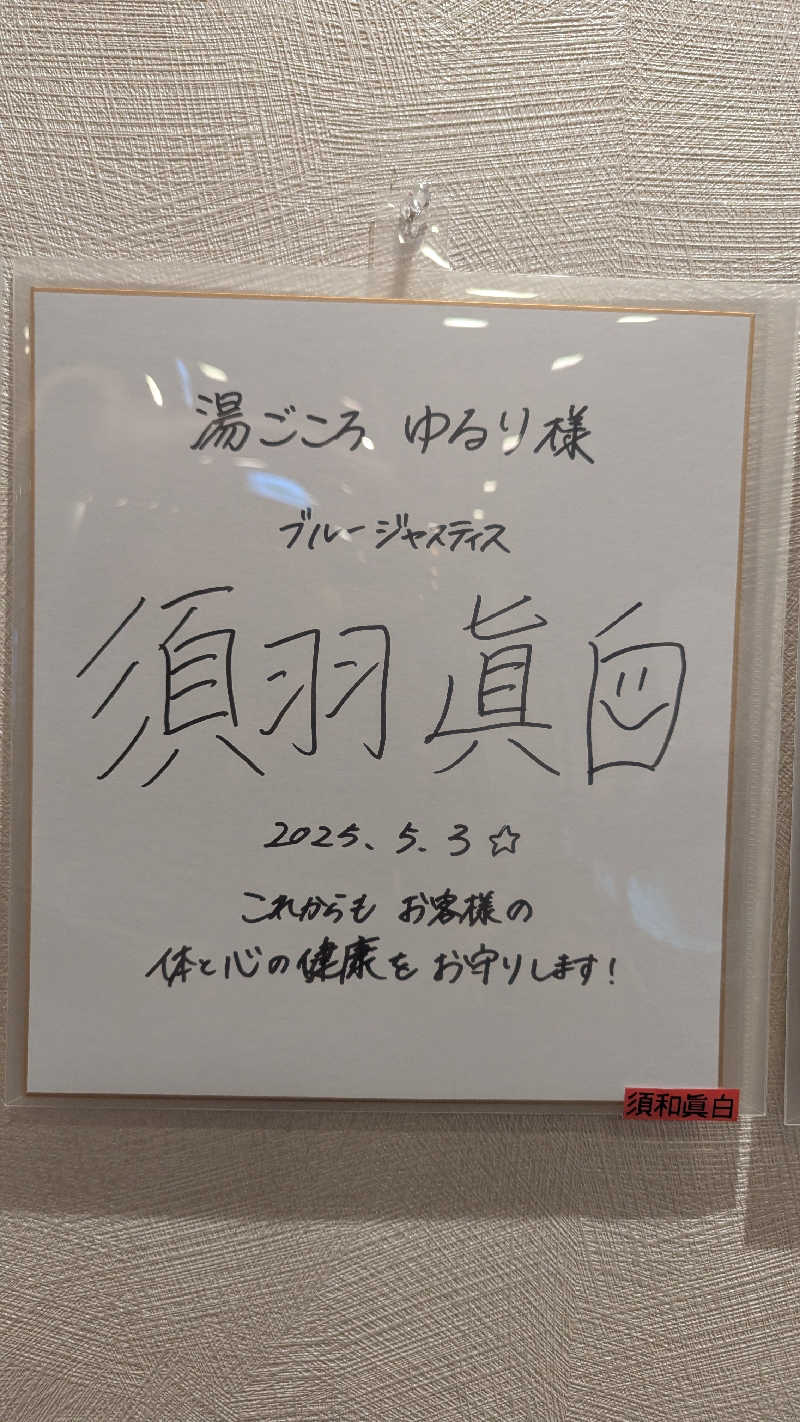 湯ごころ ゆるり様
ブルージャスティス
須羽眞白
2025、5、3☆
これからも お客様の
体と心の健康を お守りします！
須和眞白